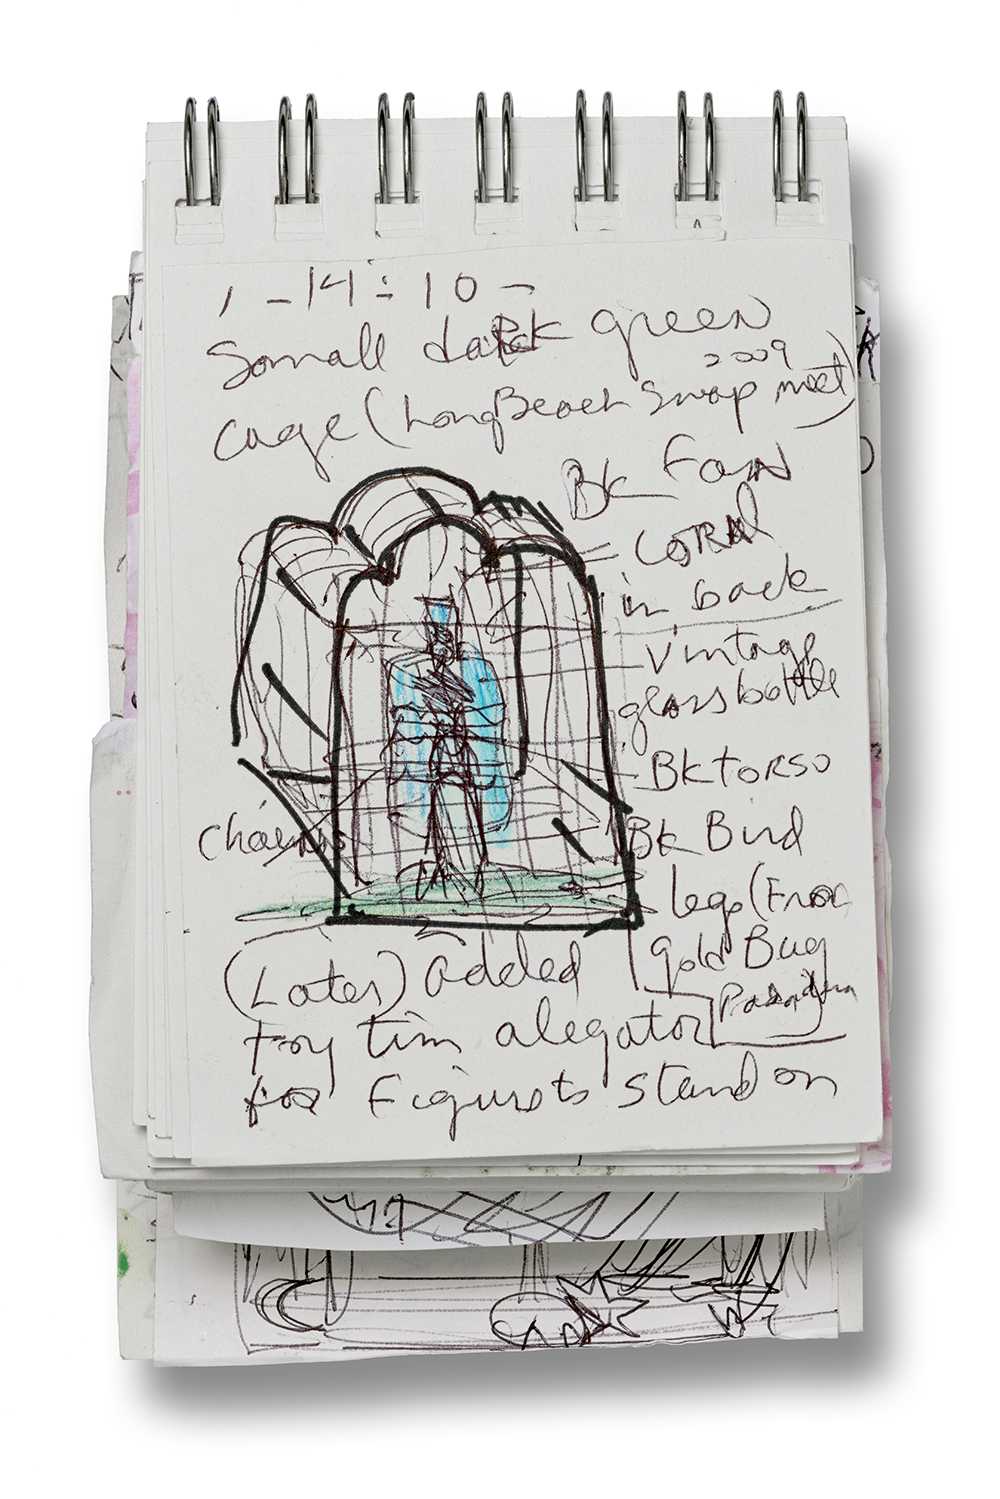 1-14-10-
Small dark green
2009
cage (Long Beach Swap meet)
Bk Fan
CORAL
in back
vintage
glass bottle
BK TORSO
Bk Bird
legs (From
gold Bug
Pasadena
chains
(Later) added
toy tin alegator
for Figure to stand on